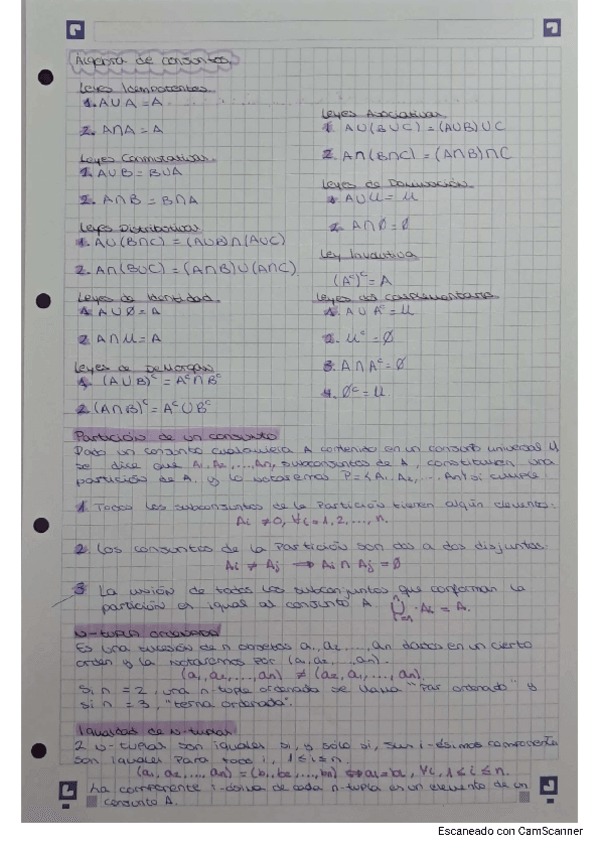 Algebra de conjuntos
Leyes Idempotentes
1. A∪A = A
2. A∩A = A
Leyes Conmutativas
1. A∪B = B∪A
2. A∩B = B∩A
Leyes Distributivas
1. A∪(B∩C) = (A∪B)∩(A∪C)
2. A∩(B∪C) = (A∩B)∪(A∩C)
Leyes de Identidad
1. A∪∅ = A
2. A∩U = A
Leyes de DeMorgan
1. (A∪B)ᶜ = Aᶜ∩Bᶜ
2. (A∩B)ᶜ = Aᶜ∪Bᶜ
Leyes Asociativas
1. A∪(B∪C) = (A∪B)∪C
2. A∩(B∩C) = (A∩B)∩C
Leyes de Dominación
1. A∪U = U
2. A∩∅ = ∅
Ley Involutiva
(Aᶜ)ᶜ = A
Leyes del Complementario
1. A∪Aᶜ = U
2. Uᶜ = ∅
3. A∩Aᶜ = ∅
4. ∅ᶜ = U
Partición de un conjunto
Dado un conjunto cualquiera A contenido en un conjunto universal U
se dice que A₁, A₂, ..., An, subconjuntos de A, constituyen una
partición de A, y lo notaremos P = {A₁, A₂, ... An} si cumple:
1. Todos los subconjuntos de la Partición tienen algún elemento.
Ai ≠ ∅, ∀i = 1, 2, ..., n.
2. Los conjuntos de la Partición son dos a dos disjuntos.
Ai ≠ Aj ⟹ Ai ∩ Aj = ∅
3 La unión de todos los subconjuntos que conforman la
partición es igual al conjunto A. ⋃ⁿᵢ₌₁ Ai = A.
N-tupla ordenada
Es una sucesión de n objetos a₁, a₂, ..., an dados en un cierto
orden y la notaremos por (a₁, a₂, ..., an).
(a₁, a₂, ..., an) ≠ (a₂, a₁, ..., an).
Si n = 2, una n-tupla ordenada se llama "Par ordenado" y
si n = 3, "terna ordenada".
Igualdad de N-tuplas
2 N-tuplas son iguales si, y sólo si, sus i-ésimas componentes
son iguales para todo i, 1 ≤ i ≤ n.
(a₁, a₂, ..., an) = (b₁, b₂, ..., bn) ⟺ ai = bi, ∀i, 1 ≤ i ≤ n.
La componente i-ésima de cada n-tupla es un elemento de un
conjunto A.
Escaneado con CamScanner